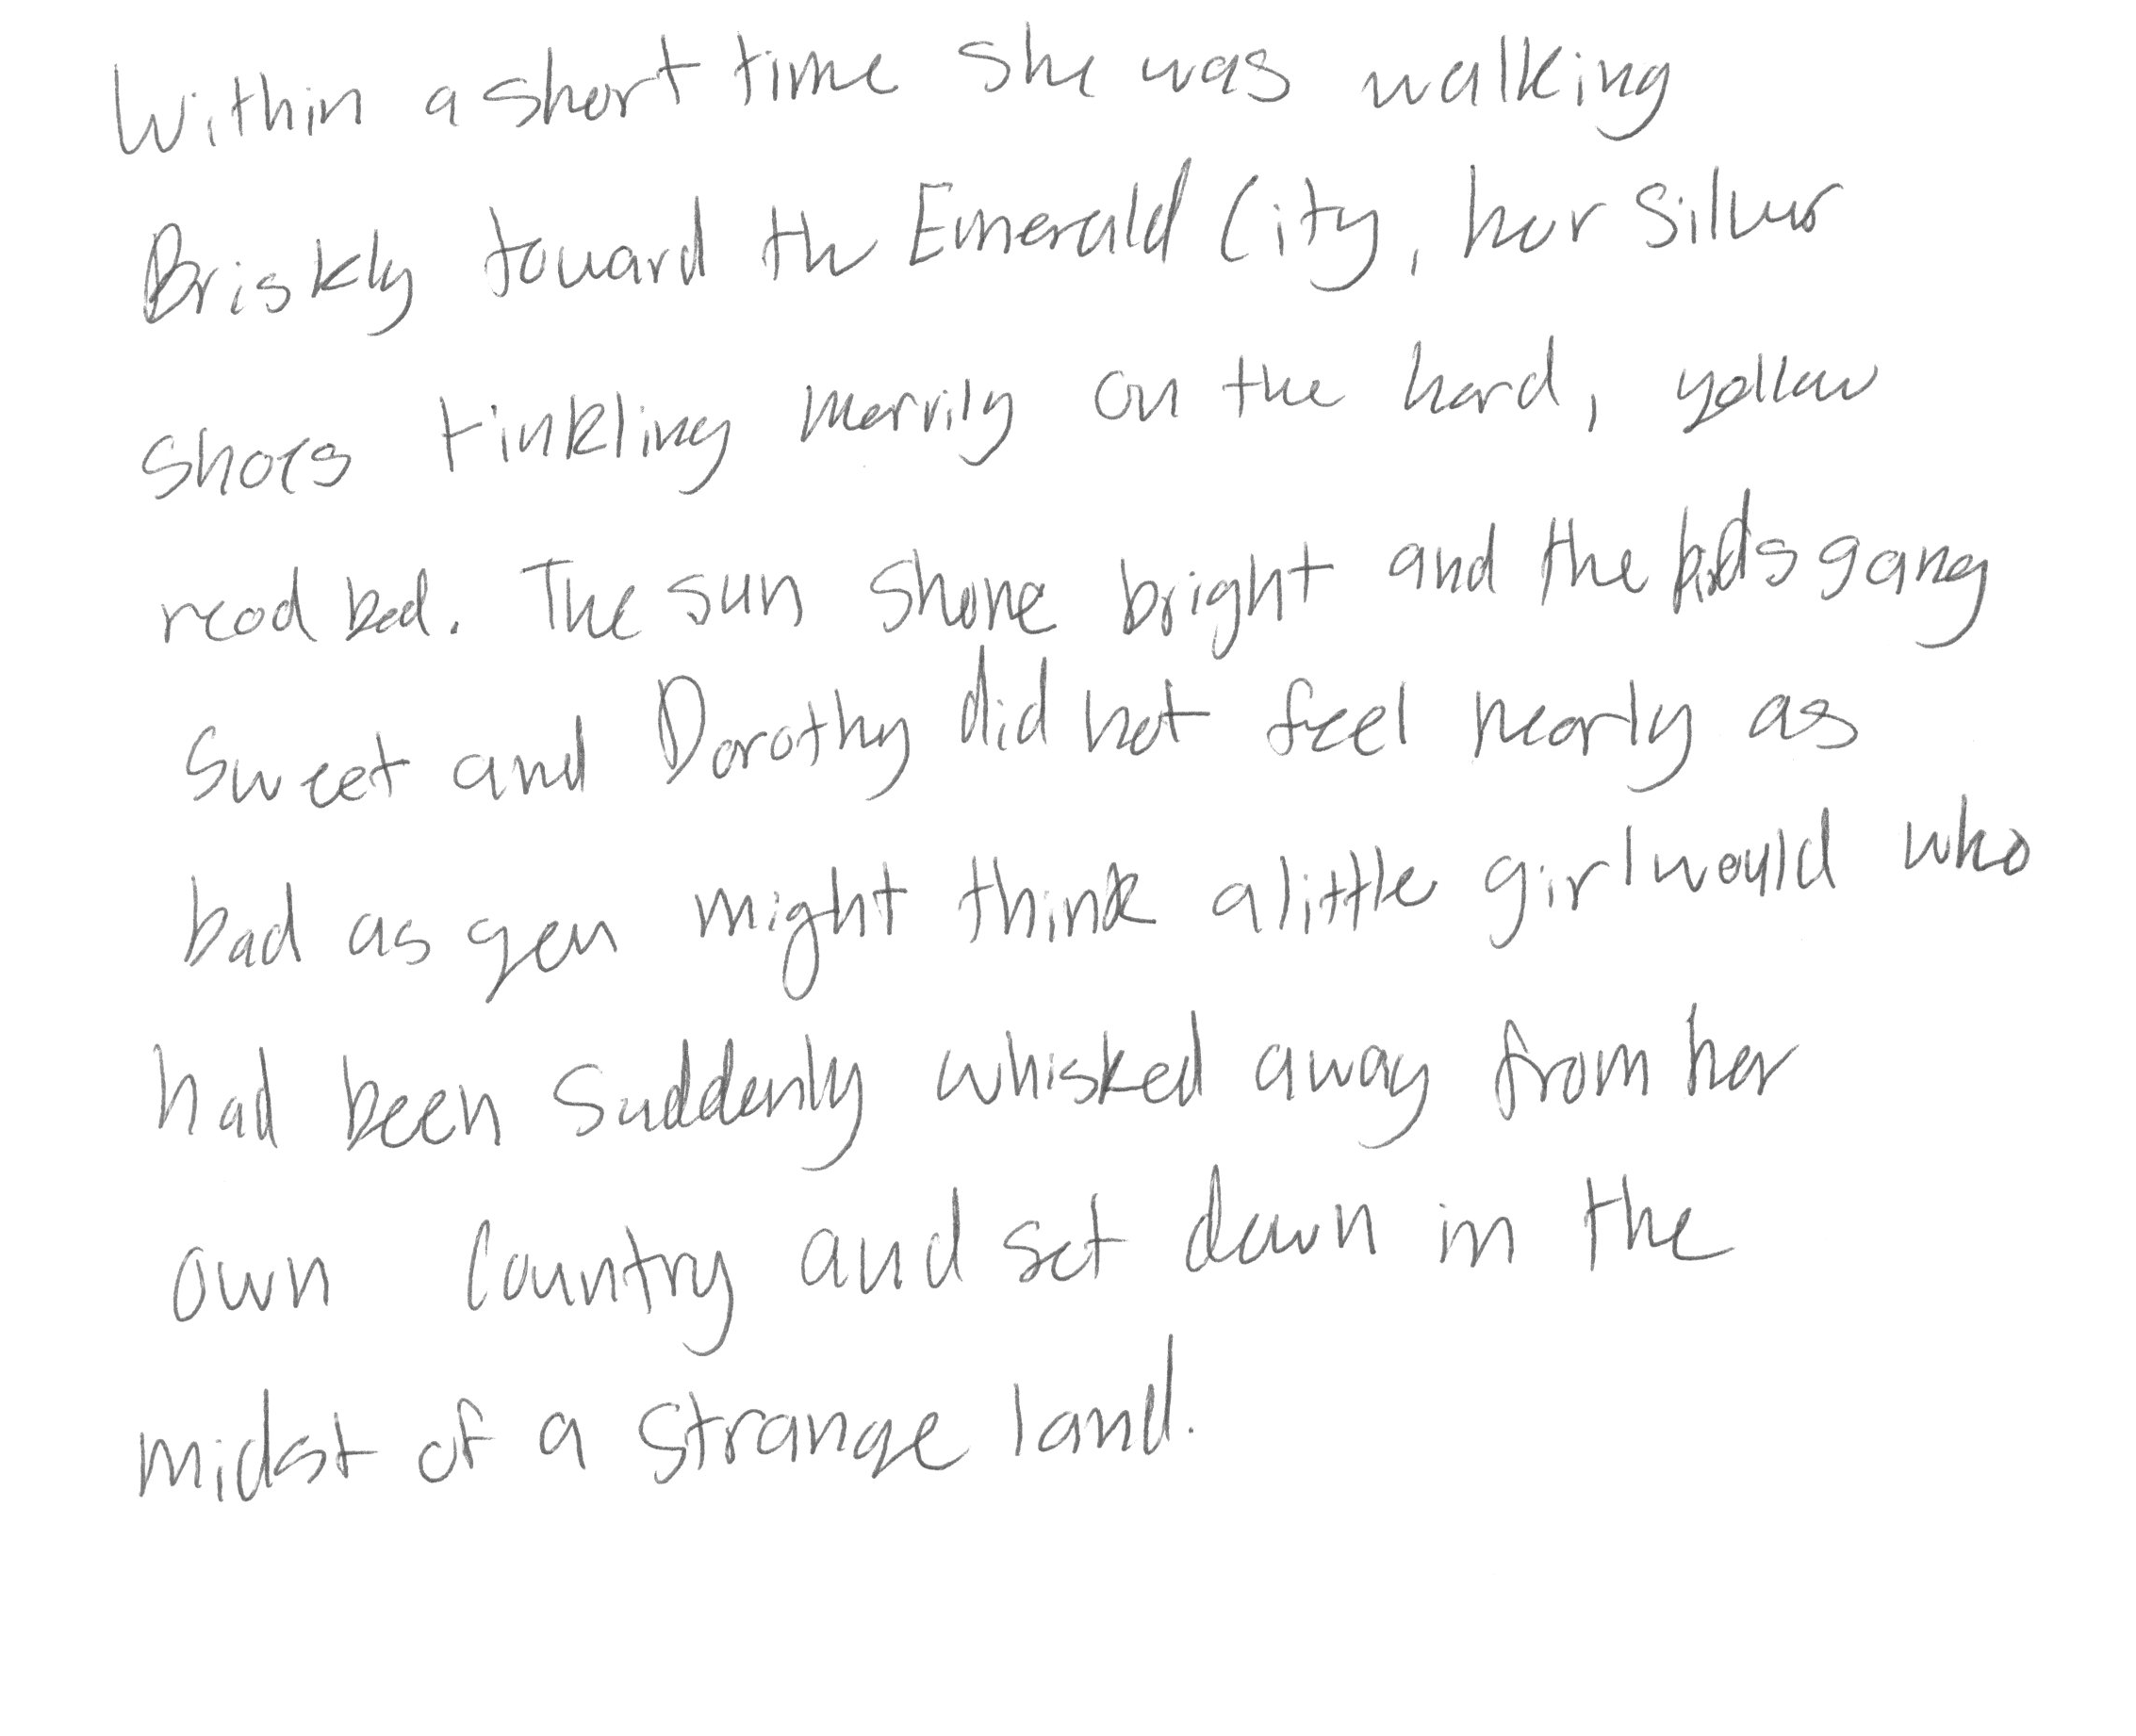 Within a short time she was walking
Briskly toward the Emerald City, her Silver
shoes tinkling merrily on the hard, yellow
road bed. The sun shone bright and the birds sang
sweet and Dorothy did not feel nearly as
bad as you might think a little girl would who
had been suddenly whisked away from her
own country and set down in the
midst of a strange land.